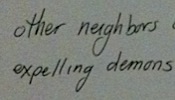 other neighbors
expelling demons